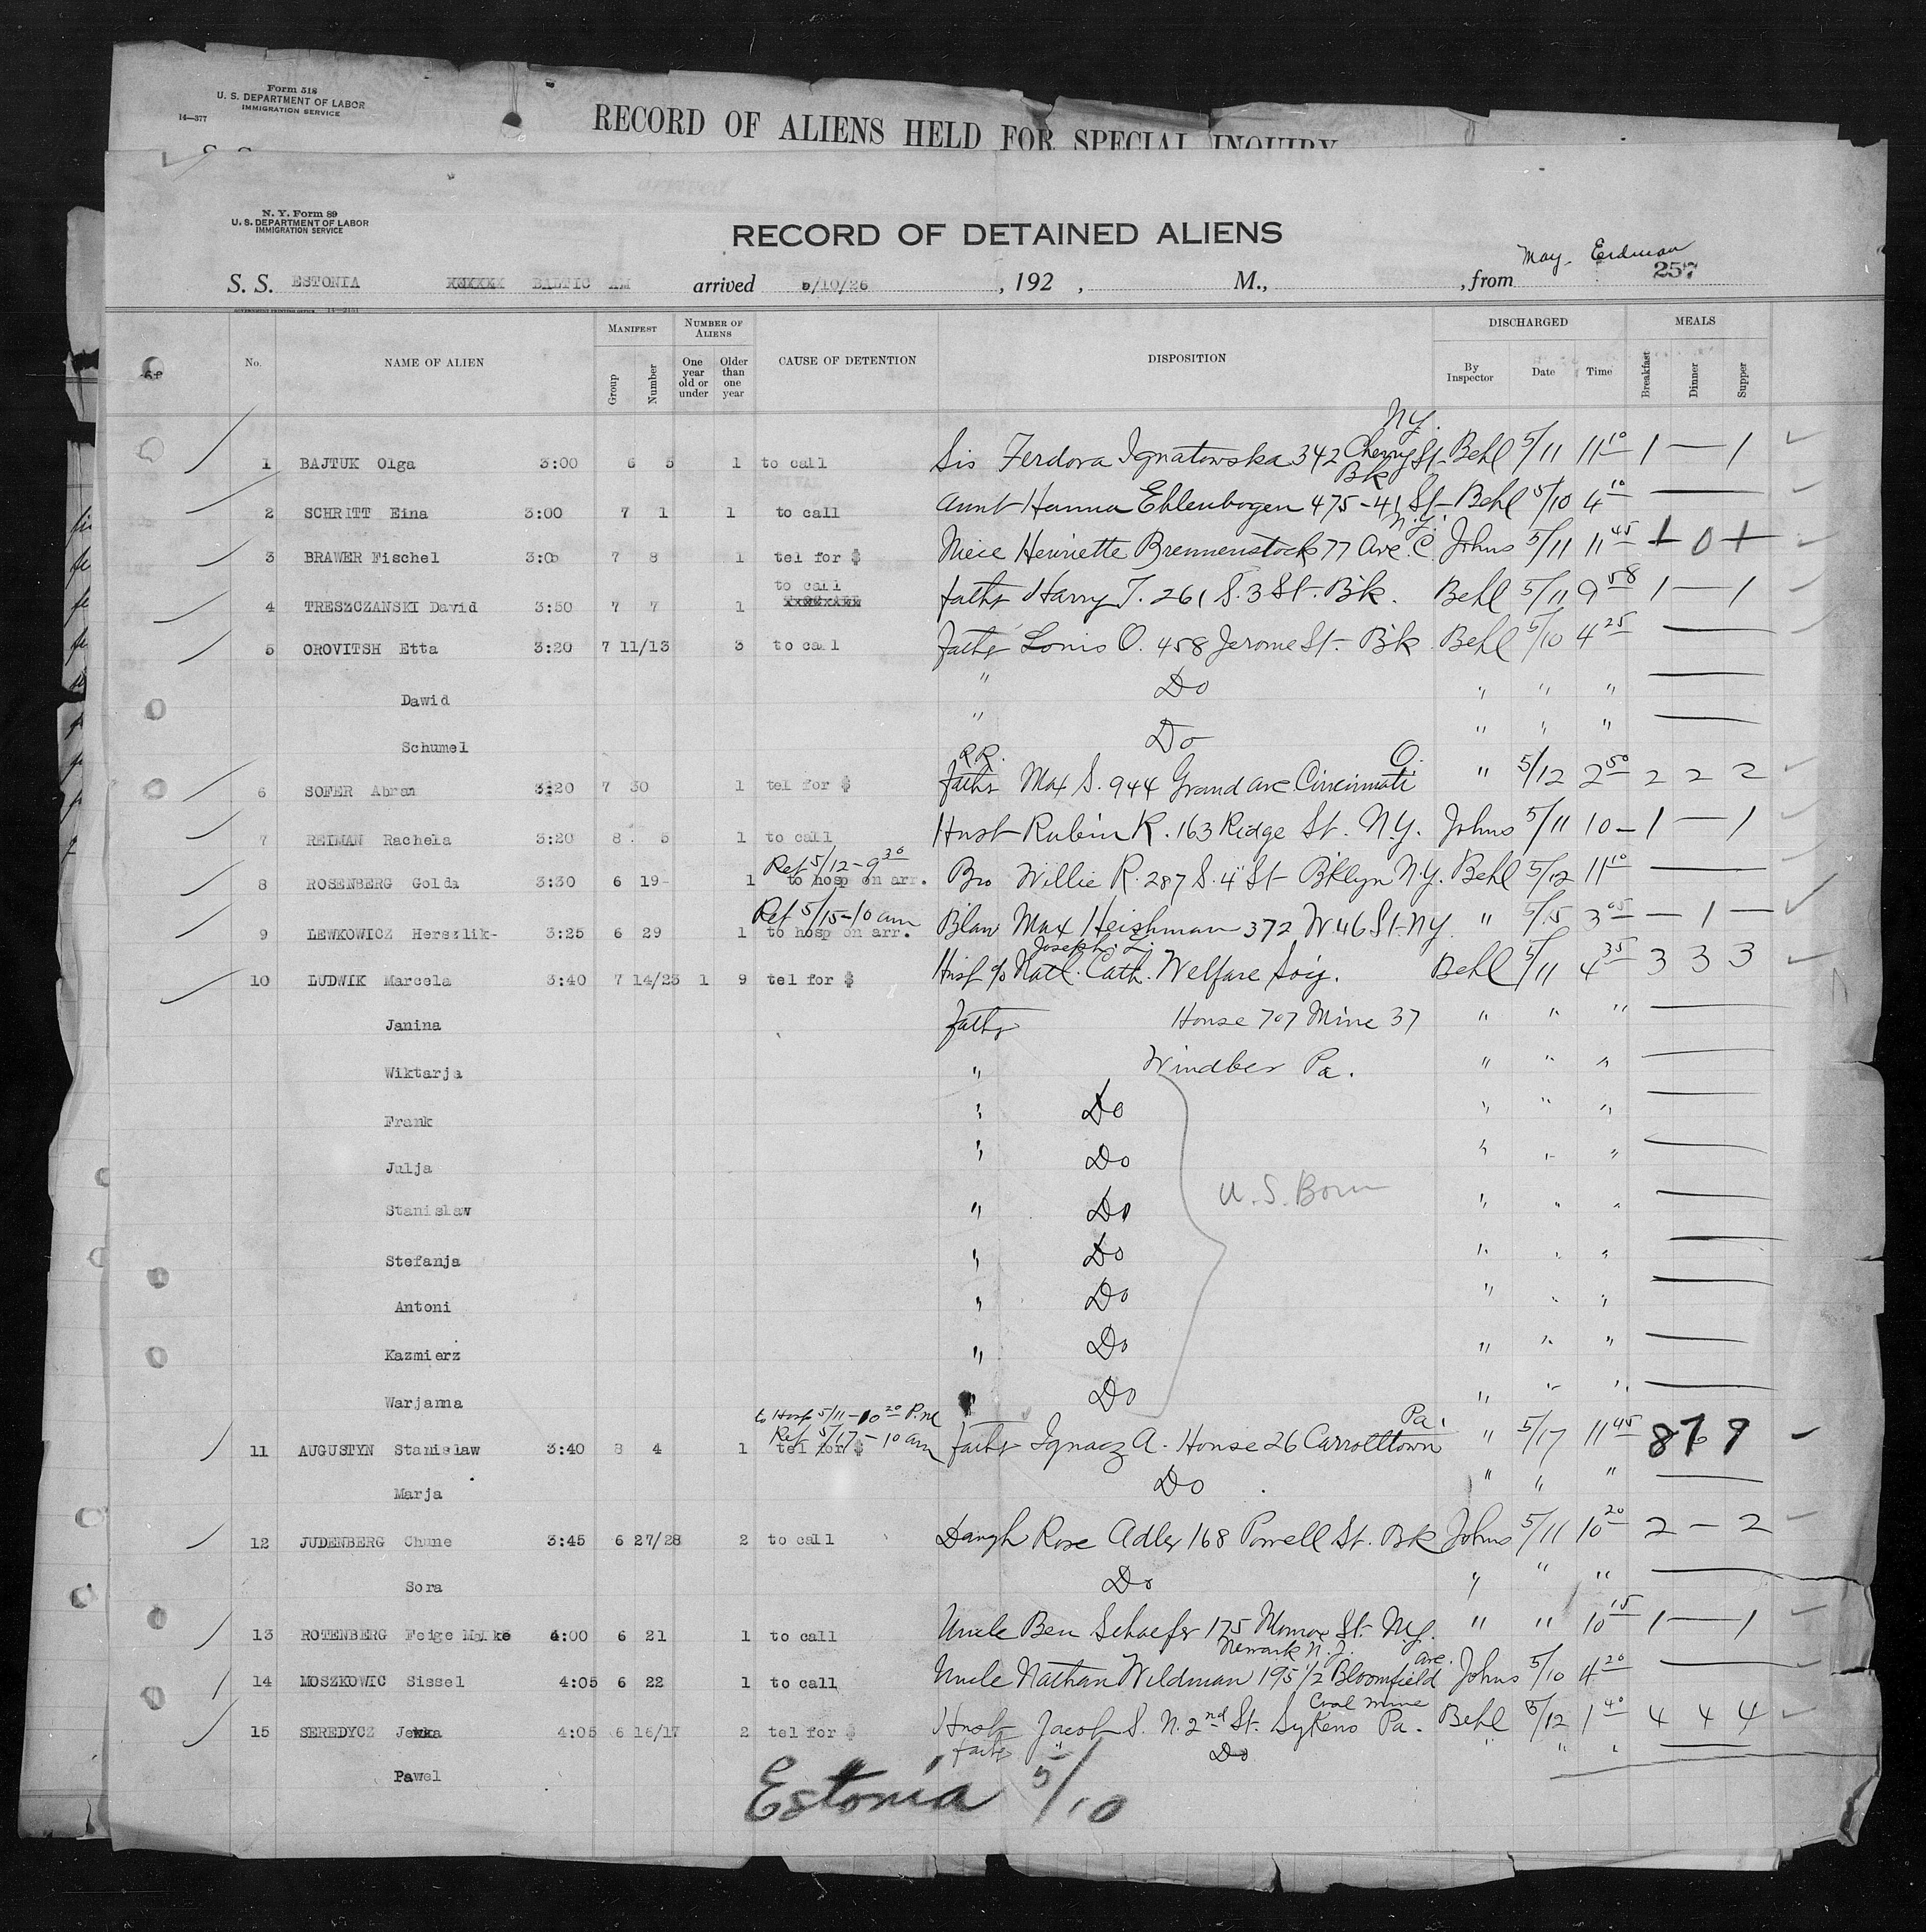 Form 518
U. S. DEPARTMENT OF LABOR
IMMIGRATION SERVICE
14—377
RECORD OF ALIENS HELD FOR SPECIAL INQUIRY
N. Y. Form 89
U. S. DEPARTMENT OF LABOR
IMMIGRATION SERVICE
RECORD OF DETAINED ALIENS
May. Erdman
S. S. ESTONIA BALTIC AM arrived 5/10/26, 192 , M., , from 257
GOVERNMENT PRINTING OFFICE 14—2151
No. NAME OF ALIEN MANIFEST Group Number NUMBER OF ALIENS One year old or under Older than one year CAUSE OF DETENTION DISPOSITION DISCHARGED By Inspector Date Time MEALS Breakfast Dinner Supper
N.Y.
1 BAJTUK Olga 3:00 6 5 1 to call Sis Ferdora Ignatowska 342 Cherry St- Behl 5/11 11 10 1 — 1
Bk
2 SCHRITT Eina 3:00 7 1 1 to call Aunt Hanna Ehlenbogen 475-41 St- Behl 5/10 4 10 —
N.Y.
3 BRAWER Fischel 3:00 7 8 1 tel for $ Niece Henriette Brennenstock 77 Ave. C Johns 5/11 11 45 1 0 1
to call
4 TRESZCZANSKI David 3:50 7 7 1 Fathr Harry T. 261 S. 3 St. Bk. Behl 5/11 9 58 1 — 1
5 OROVITSH Etta 3:20 7 11/13 3 to call Fathr Louis O. 458 Jerome St- Bk Behl 5/10 4 25 —
Dawid " Do " " " —
Schumel " Do " " " —
RR. O.
6 SOFER Abram 3:20 7 30 1 tel for $ Fathr Max S. 944 Grand ave Cincinnati " 5/12 2 50 2 2 2
7 REIMAN Rachela 3:20 8 5 1 to call Husb Rubin R. 163 Ridge St. N.Y. Johns 5/11 10 — 1 — 1
Ret 5/12-9 30
8 ROSENBERG Golda 3:30 6 19 1 to hosp on arr. Bro Willie R. 287 S. 4" St Bklyn N.Y. Behl 5/12 11 10 —
Ret 5/15-10 am
9 LEWKOWICZ Herszlik- 3:25 6 29 1 to hosp on arr. Blaw Max Heishman 372 W. 46 St- NY. " 5/15 3 05 — 1 —
Joseph L.
10 LUDWIK Marcela 3:40 7 14/23 1 9 tel for $ Husb c/o Natl. Cath. Welfare Soiy. Behl 5/11 4 35 3 3 3
Janina Fathr House 707 Mine 37 " " " —
Wiktarja " Windber Pa. " " " —
Frank " Do " " " —
Julja " Do " " " —
Stanislaw " Do U. S. Born " " " —
Stefanja " Do " " " —
Antoni " Do " " " —
Kazmierz " Do " " " —
Warjanna " Do " " " —
to Hosp 5/11-10 20 P.M Pa.
Ret 5/17-10 am
11 AUGUSTYN Stanislaw 3:40 8 4 1 tel for $ Fathr Ignacz A. House 26 Carrolltown " 5/17 11 45 8 7 9
Marja Do " " " —
12 JUDENBERG Chune 3:45 6 27/28 2 to call Daugh Rose Adler 168 Powell St. Bk Johns 5/11 10 20 2 — 2
Sora Do " " " —
13 ROTENBERG Feige Malke 4:00 6 21 1 to call Uncle Ben Schaefer 175 Monroe St- NY. " " 10 15 1 — 1
Newark N. J. ave.
14 MOSZKOWIC Sissel 4:05 6 22 1 to call Uncle Nathan Wildman 195 1/2 Bloomfield Johns 5/10 4 20 —
Coal mine
15 SEREDYCZ Jewka 4:05 6 16/17 2 tel for $ Husb Jacob S. N. 2nd St. Sykens Pa. Behl 5/12 1 40 4 4 4
Fathr " Do " " " —
Pawel
Estonia 5/10